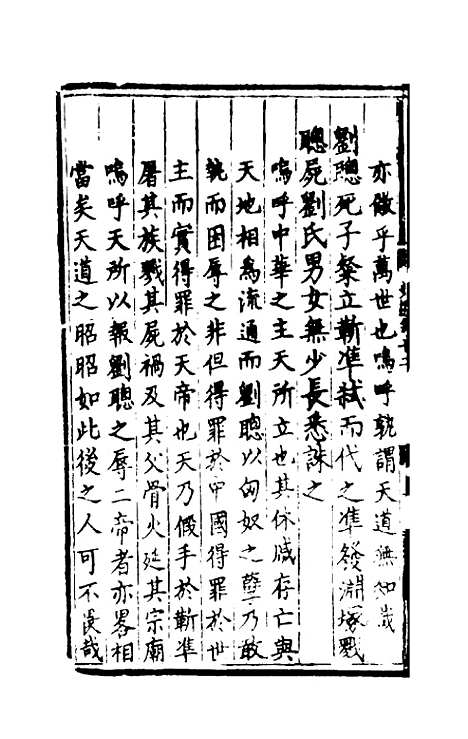 亦儆乎萬世也嗚呼孰謂天道無知哉
劉聰死子粲立靳準弒而代之準發淵塚戮
聰屍劉氏男女無少長悉誅之
嗚呼中華之主天所立也其休戚存亡與
天地相為流通而劉聰以匈奴之孽乃敢
執而困辱之非但得罪於中國得罪於世
主而實得罪於天帝也天乃假手於靳準
屠其族戮其屍禍及其父骨火延其宗廟
嗚呼天所以報劉聰之辱二帝者亦畧相
當矣天道之昭昭如此後之人可不畏哉